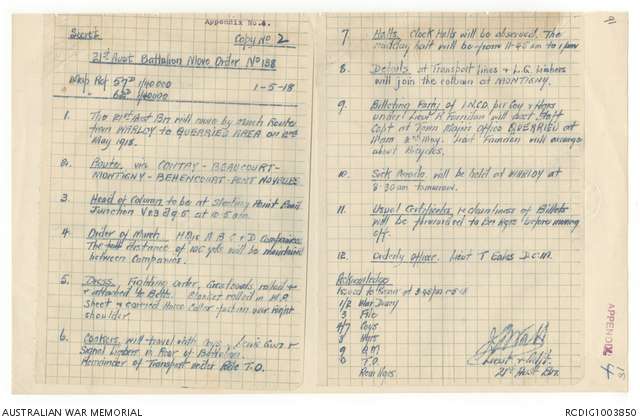 Appendix No. 4.
Secret
Copy No 2
21st Aust Battalion Move Order No 138
Map Ref 57D 1/40000
" 62D 1/40000
1-5-18
1. The 21st Aust Bn will move by march Route
from WARLOY to QUERRIEU AREA on 2nd
May 1918.
2. Route via CONTAY - BEAUCOURT -
MONTIGNY - BEHENCOURT - PONT NOYELLES
3. Head of Column to be at Starting Point Road
Junction at 10.5 am.
4. Order of March HQrs A B C & D Companies
The distance of 100 yds will be maintained
between Companies.
5. Dress, Fighting order, Greatcoats, rolled &
attached to Belts. Blanket rolled in W.P.
Sheet & carried Horse Collar fashion over right
shoulder.
6. Cookers will travel with Coys, Lewis Guns &
Signal Limbers in Rear of Battalion.
Remainder of Transport under T.O.
7. Halts, Clock Halts will be observed. The
midday halt will be from 11-45 am to 1 pm
8. Details at Transport Lines & L.G. Limbers
will join the column at MONTIGNY.
9. Billeting Party of 1 N.C.O. per Coy & HQrs
under Lieut R Farndan will meet Staff
Capt at Town Majors Office QUERRIEU at
2nd May. Lieut Farndan will arrange
about Bicycles.
10. Sick Parade will be held at WARLOY at
8-30 am tomorrow.
11. Usual Certificates re cleanliness of Billets
will be forwarded to Bn HQrs before moving
off.
12. Orderly Officer. Lieut T Eales D.C.M.
Acknowledge
Issued to at 3.45 pm 1-5-18
1/2 War Diary
3 File
4/7 Coys
8 HQrs
9 Q.M.
10 T.O.
Lieut & Adjt.
21st Aust Bn.
APPENDIX 4
AUSTRALIAN WAR MEMORIAL
RCDIG1003850